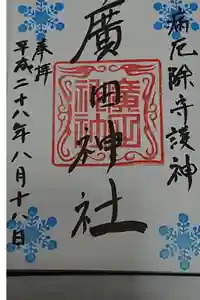 病厄除守護神
廣田神社
廣田神社
奉拝
平成二十八年八月十八日